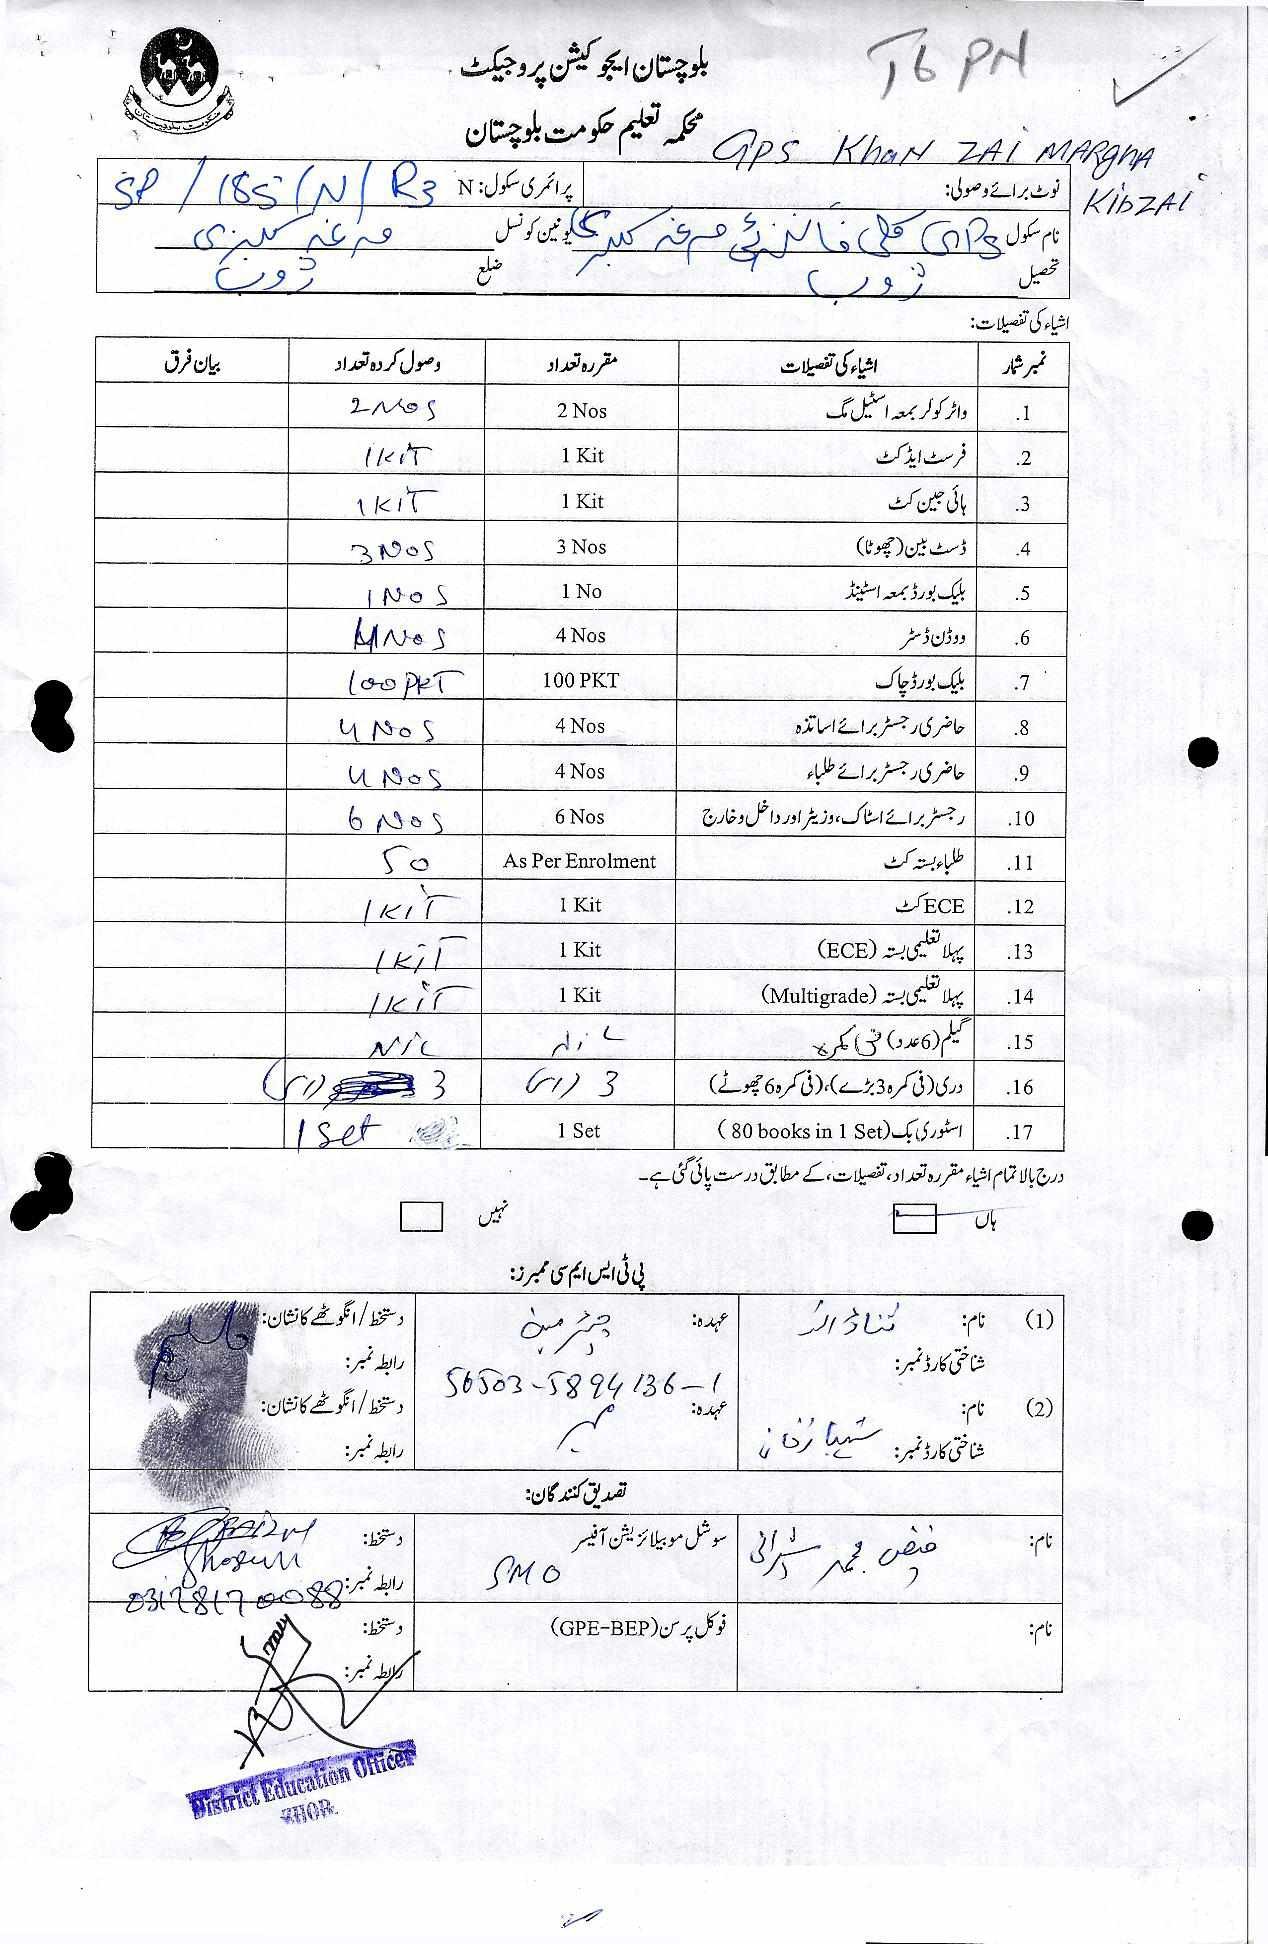 T6 PN
بلوچستان ایجوکیشن پروجیکٹ
محکمہ تعلیم حکومت بلوچستان
GPS Khan ZAI MARGHA
KibZAI
نوٹ برائے وصولی: پرائمری سکول: N SP/185/N/R3
نام سکول GPS کلی خانزئی مرغہ کبزئی یونین کونسل مرغہ کبزئی
تحصیل ژوب ضلع ژوب
اشیاء کی تفصیلات:
نمبر شمار اشیاء کی تفصیلات مقررہ تعداد وصول کردہ تعداد بیان فرق
1. واٹر کولر بمعہ اسٹیل مگ 2 Nos 2 Nos
2. فرسٹ ایڈ کٹ 1 Kit 1 KIT
3. ہائی جین کٹ 1 Kit 1 KIT
4. ڈسٹ بین (چھوٹا) 3 Nos 3 Nos
5. بلیک بورڈ بمعہ اسٹینڈ 1 No 1 Nos
6. ووڈن ڈسٹر 4 Nos 4 Nos
7. بلیک بورڈ چاک 100 PKT 100 PKT
8. حاضری رجسٹر برائے اساتذہ 4 Nos 4 Nos
9. حاضری رجسٹر برائے طلباء 4 Nos 4 Nos
10. رجسٹر برائے اسٹاک، وزیٹر اور داخل و خارج 6 Nos 6 Nos
11. طلباء بستہ کٹ As Per Enrolment 50
12. ECE کٹ 1 Kit 1 KIT
13. پہلا تعلیمی بستہ (ECE) 1 Kit 1 KIT
14. پہلا تعلیمی بستہ (Multigrade) 1 Kit 1 KIT
15. گیلم (6 عدد) فی کمرہ Nil Nil
16. دری (فی کمرہ 3 بڑے)، (فی کمرہ 6 چھوٹے) 3 دری 3 دری
17. اسٹوری بک (80 books in 1 Set) 1 Set 1 Set
درج بالا تمام اشیاء مقررہ تعداد، تفصیلات، کے مطابق درست پائی گئی ہے۔
ہاں نہیں
پی ٹی ایس ایم سی ممبرز:
(1) نام: عہدہ: چئرمین دستخط/انگوٹھے کا نشان:
شناختی کارڈ نمبر: 56503-5894136-1 رابطہ نمبر:
(2) نام: شہباز خان عہدہ: ممبر دستخط/انگوٹھے کا نشان:
شناختی کارڈ نمبر: رابطہ نمبر:
تصدیق کنندگان:
نام: فیض محمد شیرانی سوشل موبیلائزیشن آفیسر SMO دستخط:
رابطہ نمبر: 03178170088
نام: فوکل پرسن (GPE-BEP) دستخط:
رابطہ نمبر:
District Education Officer
ZHOB.